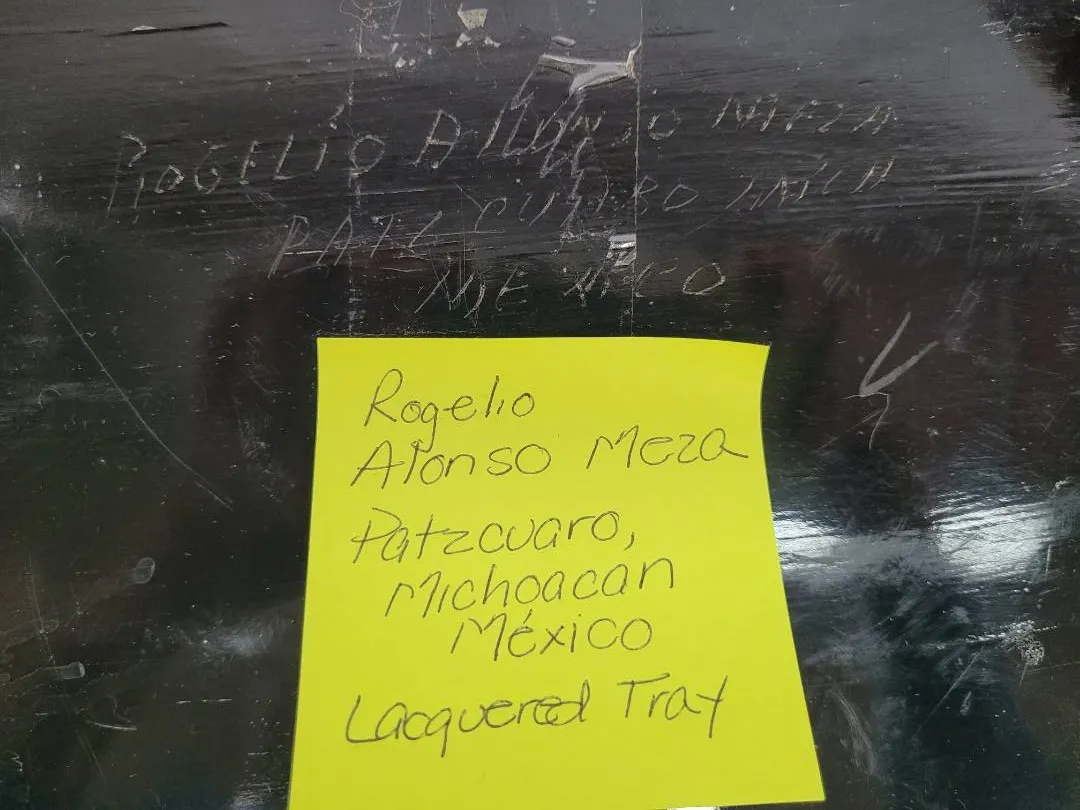 ROGELIO ALONSO MEZA
PATZCUARO MICH
MEXICO
Rogelio
Alonso Meza
Patzcuaro,
Michoacan
México
Lacquered Tray